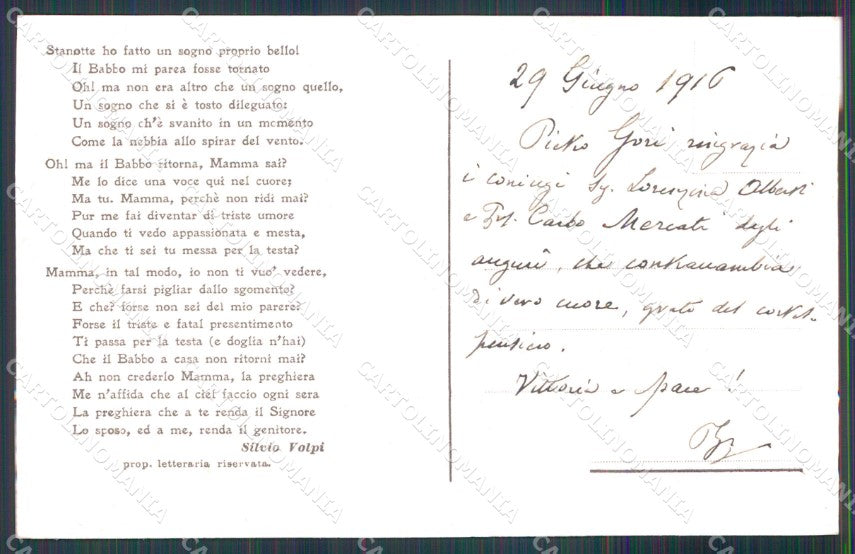 Stanotte ho fatto un sogno proprio bello!
Il Babbo mi parea fosse tornato
Oh! ma non era altro che un sogno quello,
Un sogno che si è tosto dileguato:
Un sogno ch'è svanito in un memento
Come la nebbia allo spirar del vento.
Oh! ma il Babbo ritorna, Mamma sai?
Me lo dice una voce qui nel cuore;
Ma tu. Mamma, perchè non ridi mai?
Pur me fai diventar di triste umore
Quando ti vedo appassionata e mesta,
Ma che ti sei tu messa per la testa?
Mamma, in tal modo, io non ti vuo' vedere,
Perchè farsi pigliar dallo sgomento?
E che? forse non sei del mio parere?
Forse il triste e fatal presentimento
Ti passa per la testa (e doglia n'hai)
Che il Babbo a casa non ritorni mai?
Ah non crederlo Mamma, la preghiera
Me n'affida che al ciel faccio ogni sera
La preghiera che a te renda il Signore
Lo sposo, ed a me, renda il genitore.
Silvio Volpi
prop. letteraria riservata.
29 Giugno 1916
Pietro Gori ringrazia
i coniugi Sg. Lorenzina Alberti
e Carlo Mercati degli
auguri, che contraccambia
di vero cuore, grato del cortese
pensiero.
Vittoria e pace!
CARTOLINOMANIA